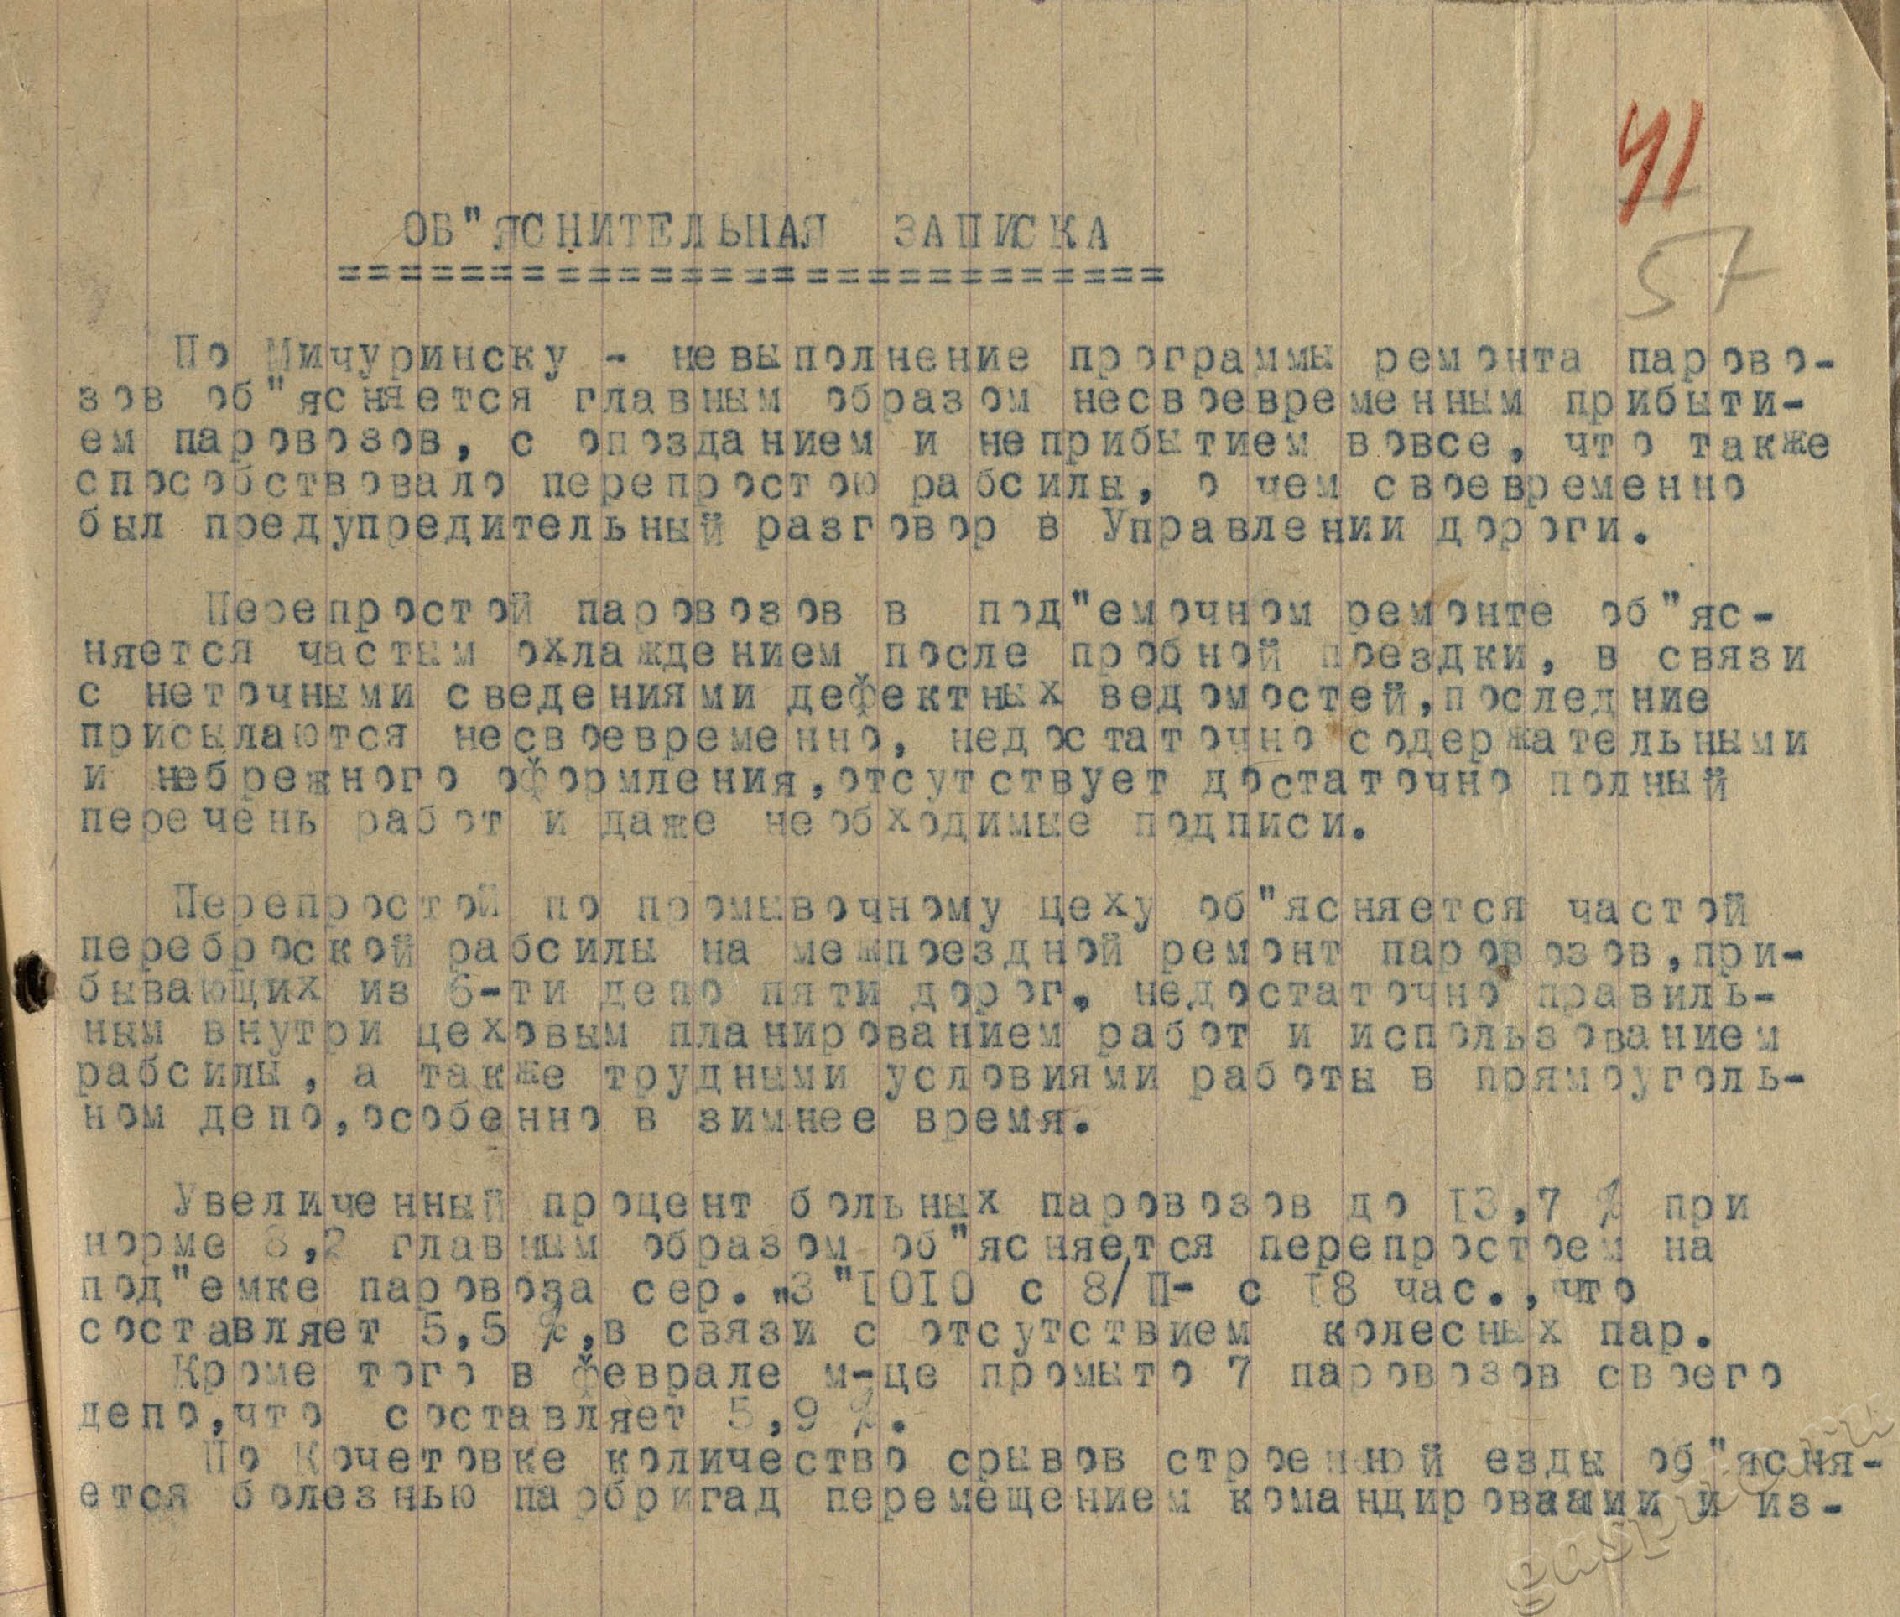 41
57
ОБ"ЯСНИТЕЛЬНАЯ ЗАПИСКА
===========================
По Мичуринску - невыполнение программы ремонта парово-
зов об"ясняется главным образом несвоевременным прибыти-
ем паровозов, с опозданием и неприбытием вовсе, что также
способствовало перепростою рабсилы, о чем своевременно
был предупредительный разговор в Управлении дороги.
Перепростой паровозов в под"емочном ремонте об"яс-
няется частым охлаждением после пробной поездки, в связи
с неточными сведениями дефектных ведомостей,последние
присылаются несвоевременно, недостаточно содержательными
и небрежного оформления,отсутствует достаточно полный
перечень работ и даже необходимые подписи.
Перепростой по промывочному цеху об"ясняется частой
переброской рабсилы на межпоездной ремонт паровозов,при-
бывающих из 6-ти депо пяти дорог, недостаточно правиль-
ным внутри цеховым планированием работ и использованием
рабсилы, а также трудными условиями работы в прямоуголь-
ном депо,особенно в зимнее время.
Увеличенный процент больных паровозов до 13,7 % при
норме 8,2 главным образом об"ясняется перепростоем на
под"емке паровоза сер. "З"1010 с 8/П- с 18 час.,что
составляет 5,5 %,в связи с отсутствием колесных пар.
Кроме того в феврале м-це промыто 7 паровозов своего
депо,что составляет 5,9 %.
По Кочетовке количество срывов строенной езды об"ясня-
ется болезнью парбригад перемещением командировками и из-
gaspito.ru